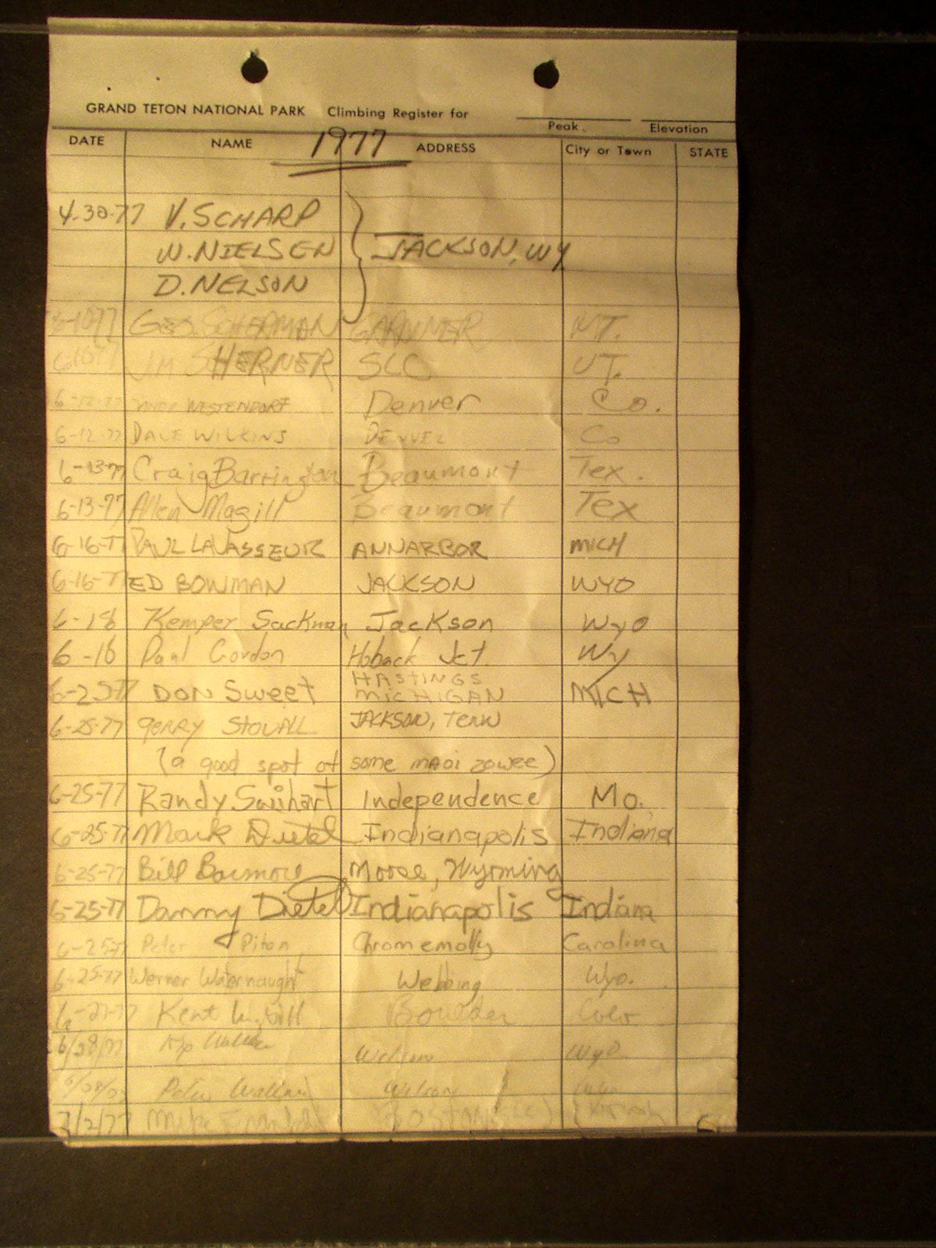 GRAND TETON NATIONAL PARK Climbing Register for
Peak. Elevation
DATE NAME 1977 ADDRESS City or Town STATE
4-30-77 V. SCHARP
W. NIELSEN JACKSON, WY
D. NELSON
GEO. SCHERMAN GARDINER MT.
JIM SHERNER SLC UT.
WESTENDORF Denver Co.
6-12-77 DAVE WILKINS DENVER Co
6-13-77 Craig Barrington Beaumont Tex.
6-13-77 Allen Magill Beaumont Tex
6-16-77 PAUL LAVASSEUR ANNARBOR MICH
6-16-77 ED BOWMAN JACKSON WYO
6-18 Kemper Sackman Jackson Wyo
6-18 Paul Gordon Hoback Jct. Wy
HASTINGS
6-25-77 DON Sweet MICHIGAN MICH
6-25-77 GERRY STOVALL JACKSON, TENN
(a good spot of some maoi zowee)
6-25-77 Randy Swihart Independence Mo.
6-25-77 Mark Dietel Indianapolis Indiana
6-25-77 Bill Barmore Moose, Wyoming
6-25-77 Danny Dietel Indianapolis Indiana
6-25-77 Peter Piton Chromemolly Carolina
6-25-77 Werner Waternaught Webbing Wyo.
6-27-77 Kent Boulder Colo
6/28/77 Wilson Wyo
Peter Wilson
7/2/77 Mike